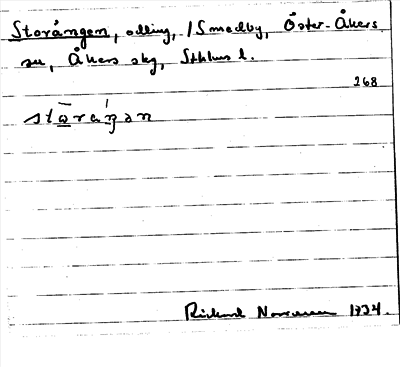 Storängen, odling, /Smedby, Öster-Åkers
sn, Åkers skg, Sthlms l.
268
stōràŋən
Rickard Norrman 1934.